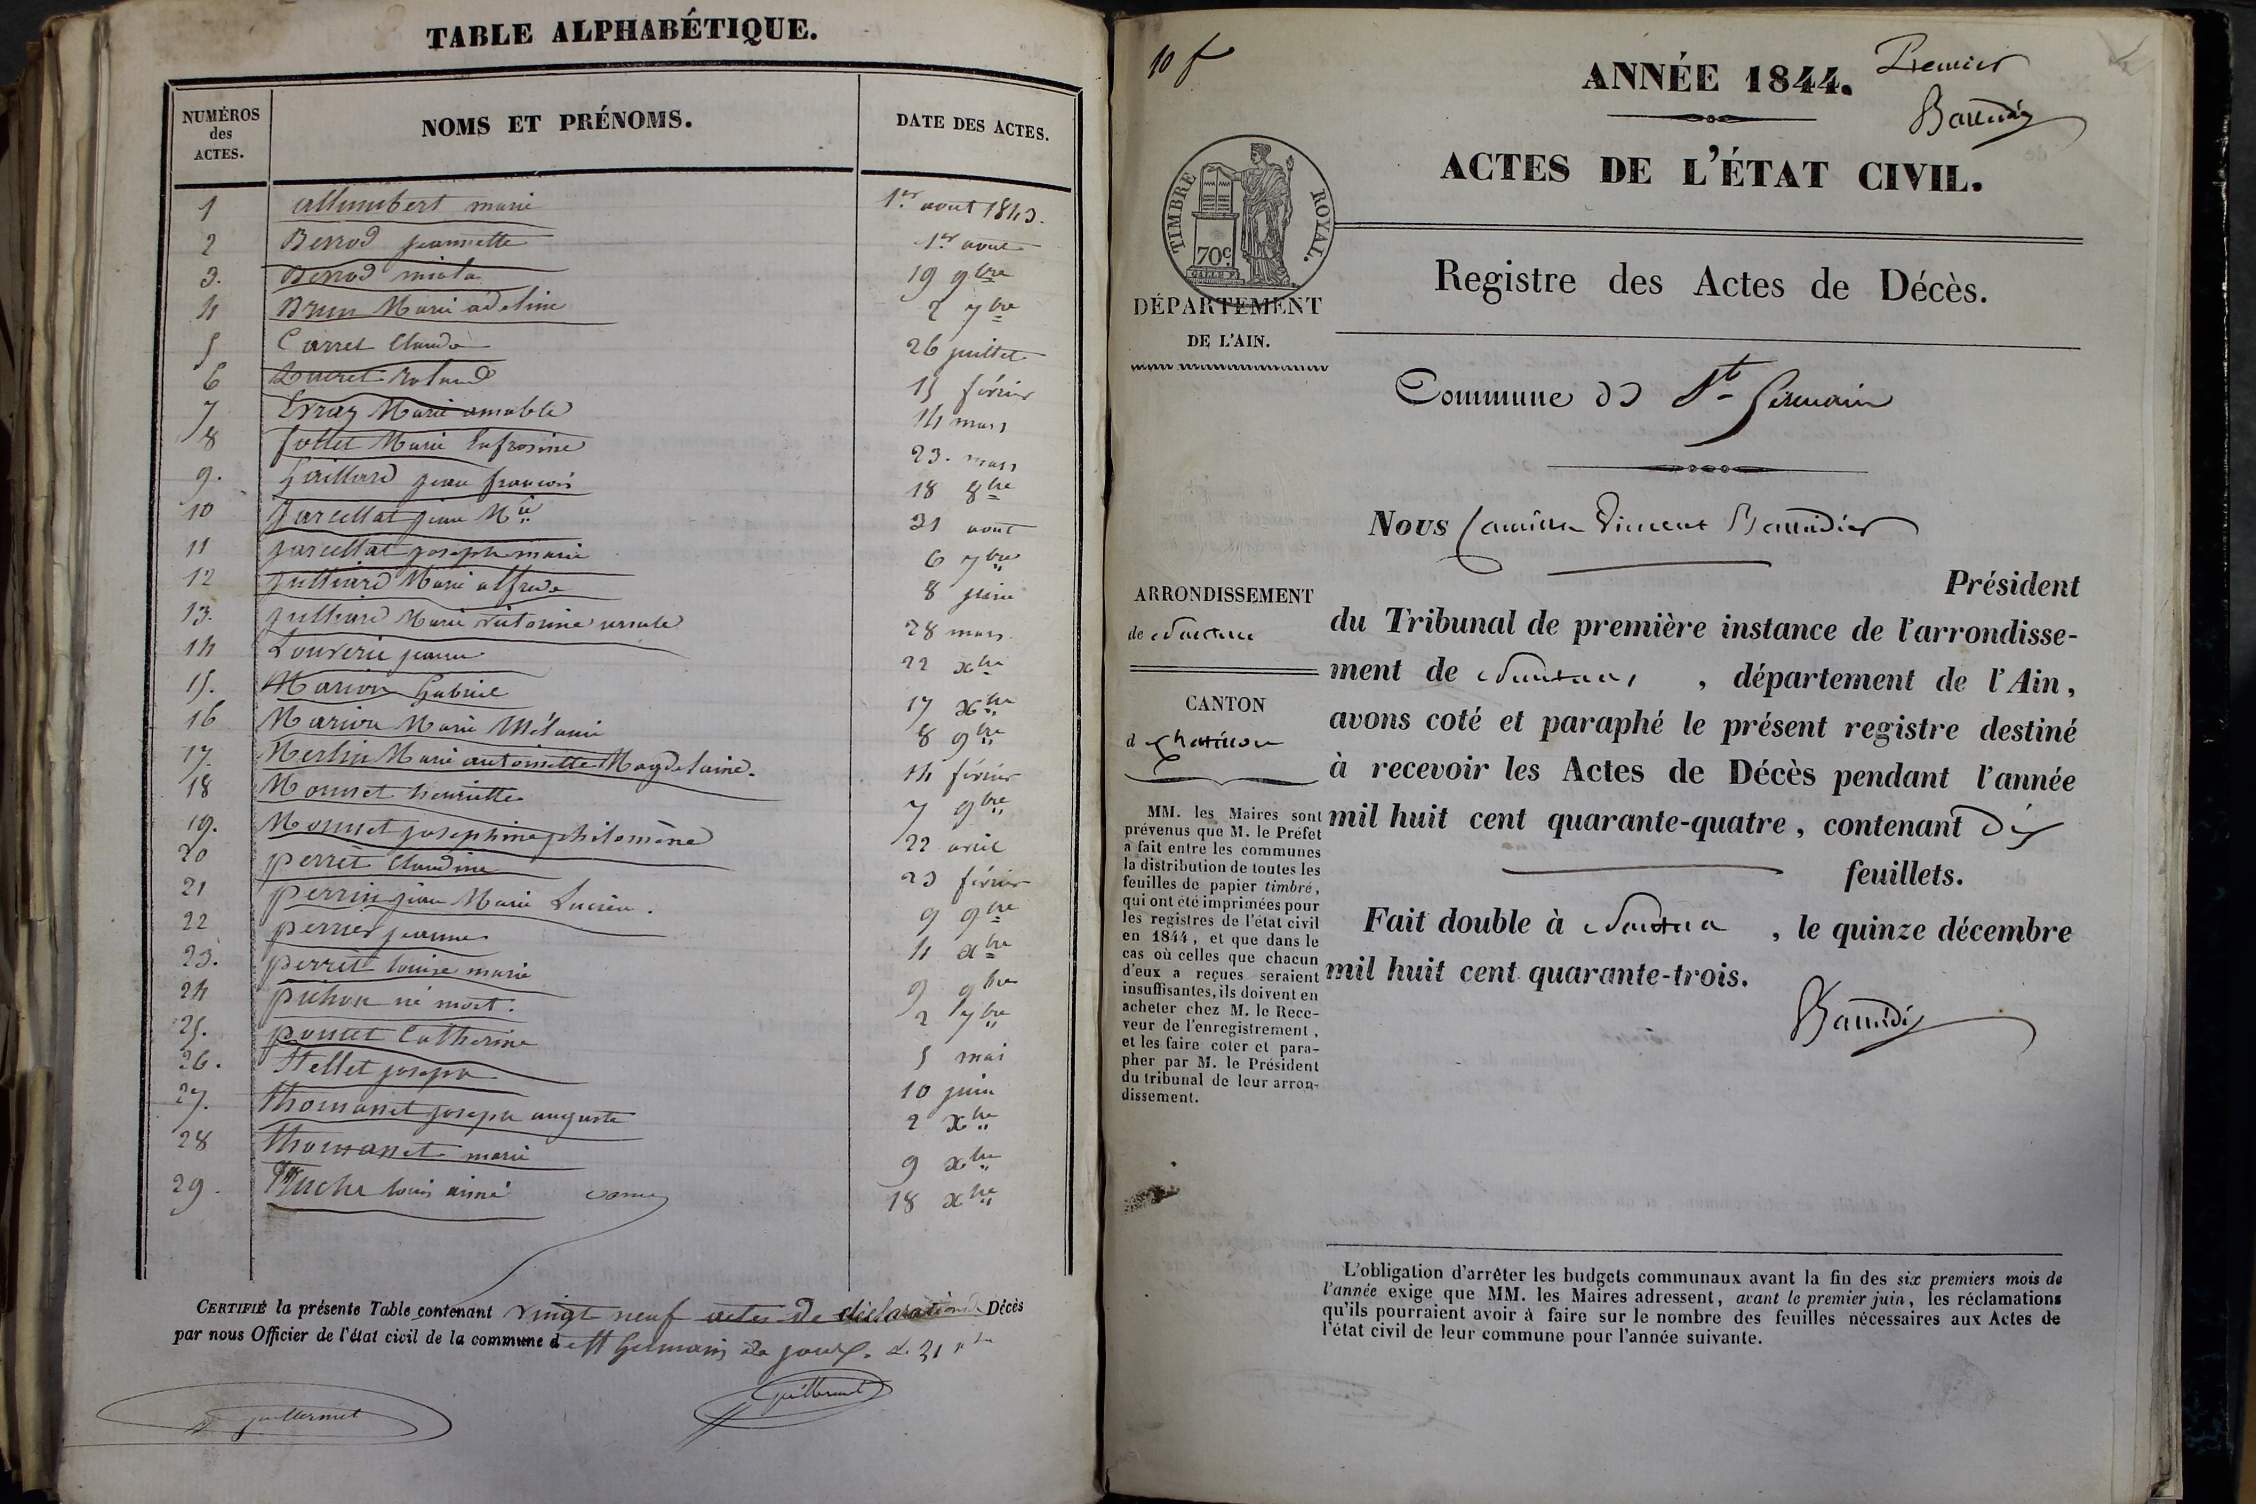 TABLE ALPHABÉTIQUE.
NUMÉROS des ACTES.
NOMS ET PRÉNOMS.
DATE DES ACTES.
1 allumbert marie 1er aout 1843.
2 Berrod jeannette 1er aout
3. Berrod 19 9bre
4 Brun Marie adeline 2 7bre
5 Carret Claude 26 juillet
6 Ducret Roland 15 février
7 Evray Marie amable 14 mars
8 follet Marie Eufrosine 23. mars
9. Gaillard jean françois 18 8bre
10 jarcellat jean Mie 31 aout
11 jarcellat joseph marie 6 7bre
12 julliard Marie alfrede 8 juin
13. julliard Marie victorine ursule 28 mars
14 Louverie jeanne 22 xbre
15. Marion Gabriel 17 xbre
16 Marion Marie Mélanie 8 9bre
17. Merlin Marie antoinette Magdelaine. 14 février
18 Monnet henriette 7 9bre
19. Monnet josephine philomène 22 avril
20 perret Claudine 23 février
21 perrin jean Marie Lucien. 9 9bre
22 perrier jeanne 4 xbre
23. perret louise marie 9 9bre
24 pichon né mort. 2 7bre
25. poncet Catherine 5 mai
26. Tellet joseph 10 juin
27. thomasset joseph auguste 2 xbre
28 thomasset marie 9 xbre
29. Tuche louis aimé 18 xbre
CERTIFIÉ la présente Table contenant vingt neuf actes de déclaration de Décès
par nous Officier de l'état civil de la commune de St Germain de joux. Le 31 xbre
guillermet
guillermet
10 f
Premier
Baudier
ANNÉE 1844.
ACTES DE L'ÉTAT CIVIL.
TIMBRE ROYAL.
70c.
DÉPARTEMENT
DE L'AIN.
Registre des Actes de Décès.
Commune de St Germain
Nous Camille Vincent Baudier
Président
du Tribunal de première instance de l'arrondisse-
ment de Nantua, département de l'Ain,
avons coté et paraphé le présent registre destiné
à recevoir les Actes de Décès pendant l'année
mil huit cent quarante-quatre, contenant dix
feuillets.
Fait double à Nantua, le quinze décembre
mil huit cent quarante-trois.
Baudier
ARRONDISSEMENT
de Nantua
CANTON
d Chatillon
MM. les Maires sont
prévenus que M. le Préfet
a fait entre les communes
la distribution de toutes les
feuilles de papier timbré,
qui ont été imprimées pour
les registres de l'état civil
en 1844, et que dans le
cas où celles que chacun
d'eux a reçues seraient
insuffisantes, ils doivent en
acheter chez M. le Rece-
veur de l'enregistrement,
et les faire coter et para-
pher par M. le Président
du tribunal de leur arron-
dissement.
L'obligation d'arrêter les budgets communaux avant la fin des six premiers mois de
l'année exige que MM. les Maires adressent, avant le premier juin, les réclamations
qu'ils pourraient avoir à faire sur le nombre des feuilles nécessaires aux Actes de
l'état civil de leur commune pour l'année suivante.